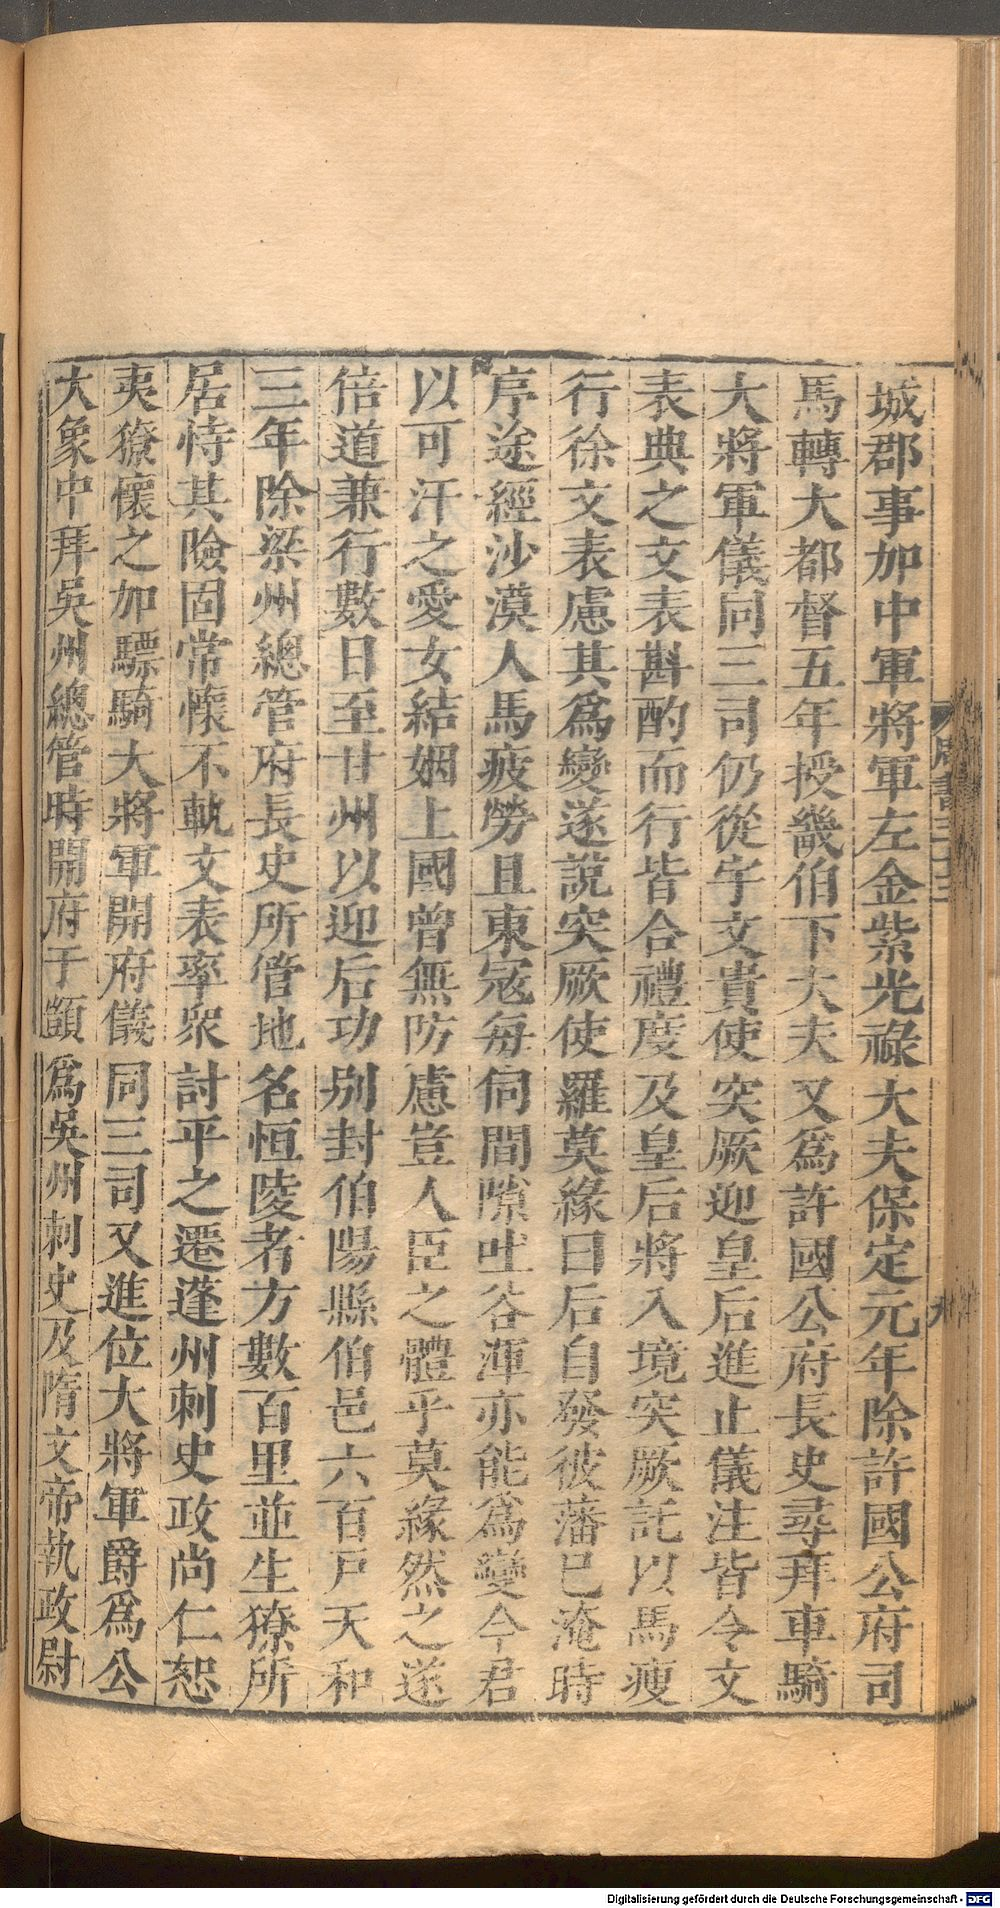 城郡事加中軍將軍左金紫光祿大夫保定元年除許國公府司
馬轉大都督五年授畿伯下大夫又爲許國公府長史尋拜車騎
大將軍儀同三司仍從宇文貴使突厥迎皇后進止儀注皆令文
表典之文表斟酌而行皆合禮度及皇后將入境突厥託以馬瘦
行徐文表慮其爲變遂說突厥使羅莫緣曰后自發彼藩已淹時
序途經沙漠人馬疲勞且東寇每伺間隙吐谷渾亦能爲變今君
以可汗之愛女結姻上國曾無防慮豈人臣之體乎莫緣然之遂
倍道兼行數日至甘州以迎后功別封伯陽縣伯邑六百戶天和
三年除梁州總管府長史所管地名恒陵者方數百里並生獠所
居恃其險固常懷不軌文表率衆討平之遷蓬州刺史政尚仁恕
夷獠懷之加驃騎大將軍開府儀同三司又進位大將軍爵爲公
大象中拜吳州總管時開府于顗爲吳州刺史及隋文帝執政尉
周書三十三
九
Digitalisierung gefördert durch die Deutsche Forschungsgemeinschaft - DFG